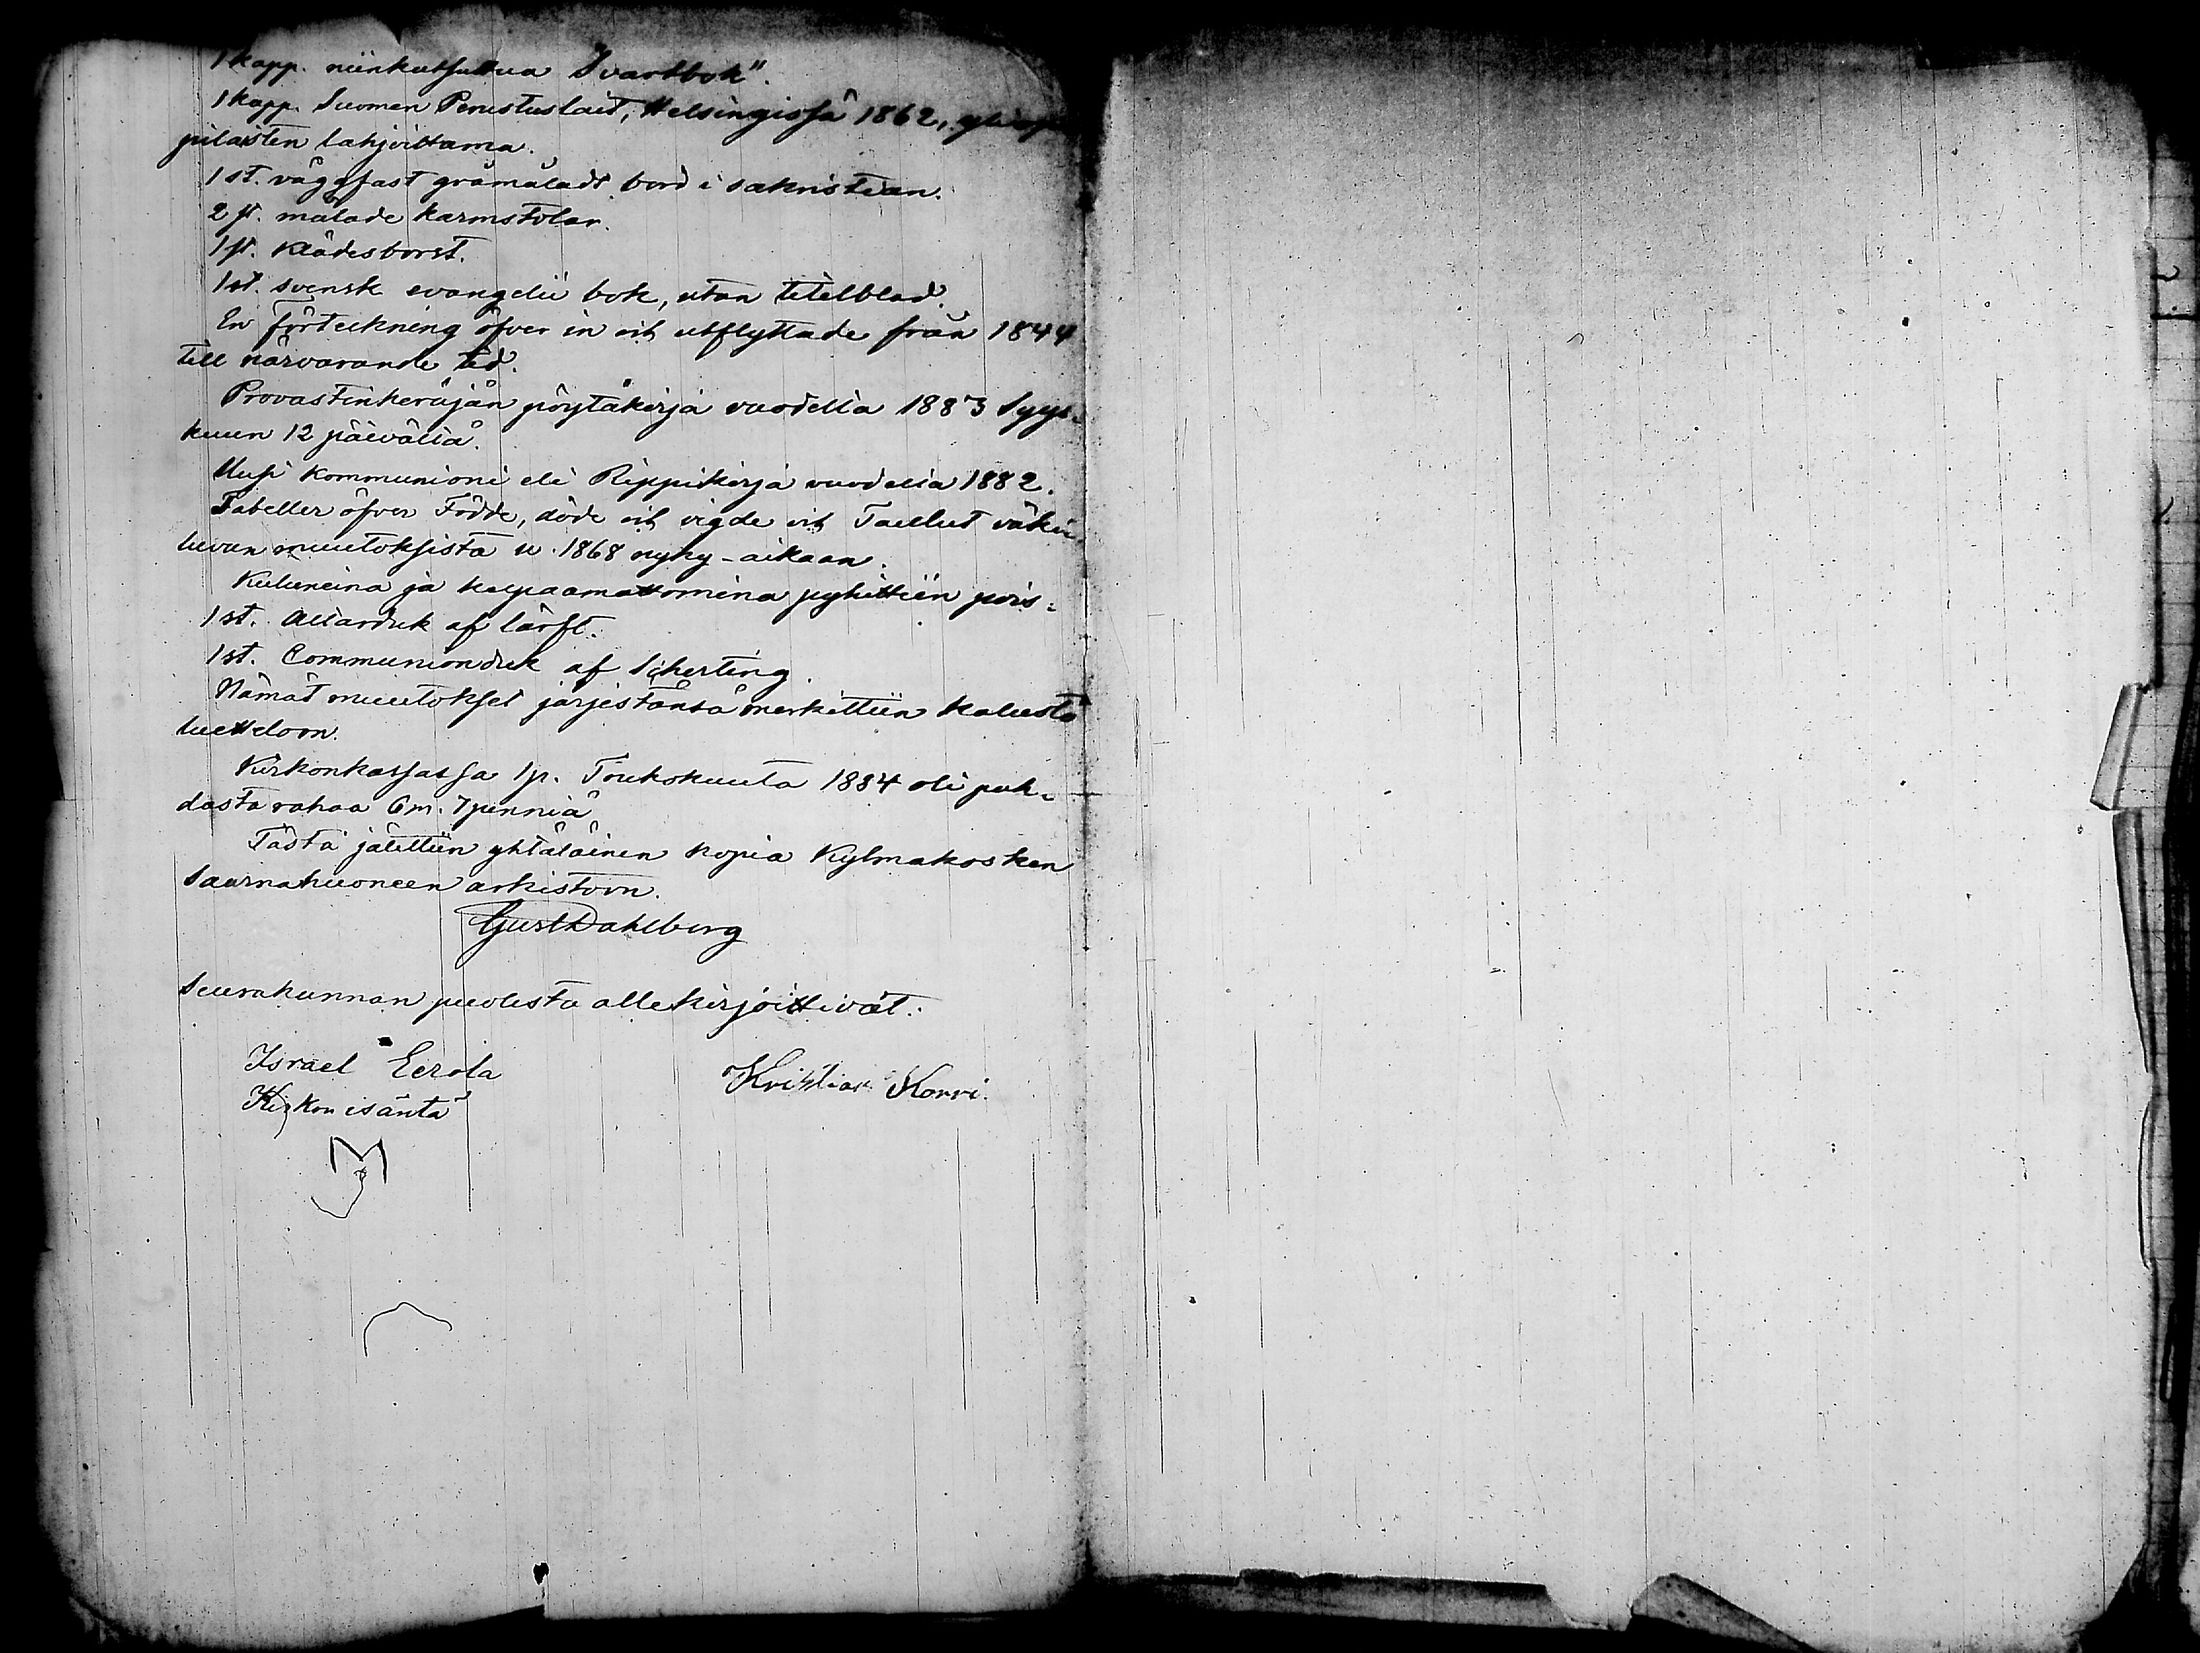 1 kapp. niinkutsuttua Svartbok".
1 kapp. Suomen Perustuslait, Helsingissä 1862, yliop
pilaisten lahjoittama.
1 st. väggfast gråmåladt bord i sakristian.
2 st. målade karmstolar.
1 st. klädesborst.
1 st. svensk evangelii bok, utan titelblad.
En förteckning öfver in och utflyttade från 1844
till närvarande tid.
Provastinkeräjän pöytäkirja vuodelta 1883 Syys-
kuun 12 päivältä.
Uusi kommunioni eli Rippikirja vuodelta 1882.
Tabeller öfver Födde, döde och vigde och Taulut väki-
luvun muutoksista v. 1868 nyky-aikaan.
Kuluneina ja kelpaamattomina pyhittiin pois:
1 st. Altarduk af lärft.
1 st. Communionduk af Scherting.
Nämät muutokset järjestänsä merkittiin kalusto
luetteloon.
Kirkonkassassa 1 p. Toukokuuta 1884 oli puh-
dasta rahaa 6 m. 7 penniä
Tästä jätettiin yhtäläinen kopia Kylmakosken
Saarnahuoneen arkistoon.
Gust Dahlberg
Seurakunnan puolesta allekirjoittivat:
Israel Eerola Kristian Korri.
Kirkon isäntä